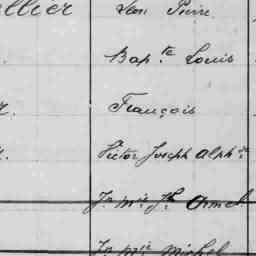 ellier Jean Pierre
Bap.te Louis
François
Victor Joseph Alph.se
Jn Mie Jh Armel
Jn Mie Michel